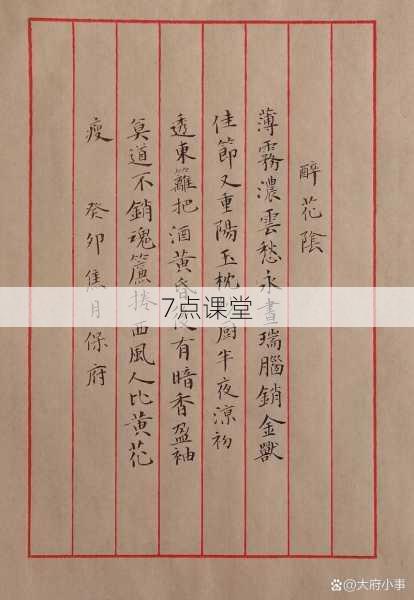 醉花陰
薄霧濃雲愁永晝瑞腦銷金獸
佳節又重陽玉枕厨半夜涼初
透東籬把酒黃昏後有暗香盈袖
莫道不銷魂簾捲西風人比黃花
瘦 癸卯焦月保府
7点课堂
大府小事